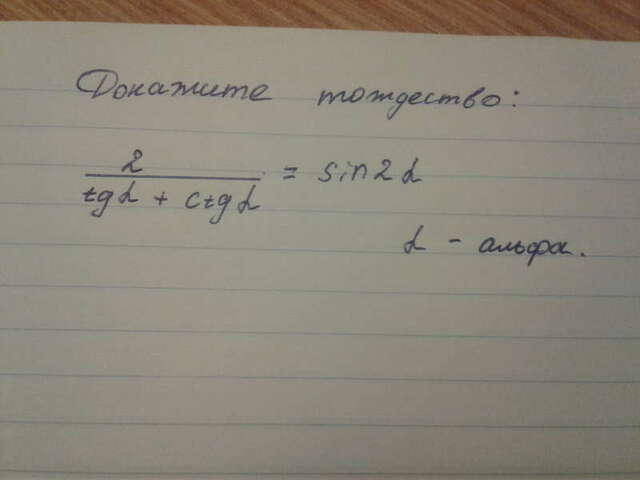 Докажите тождество:
2 / (tg α + ctg α) = sin 2 α
α - альфа.